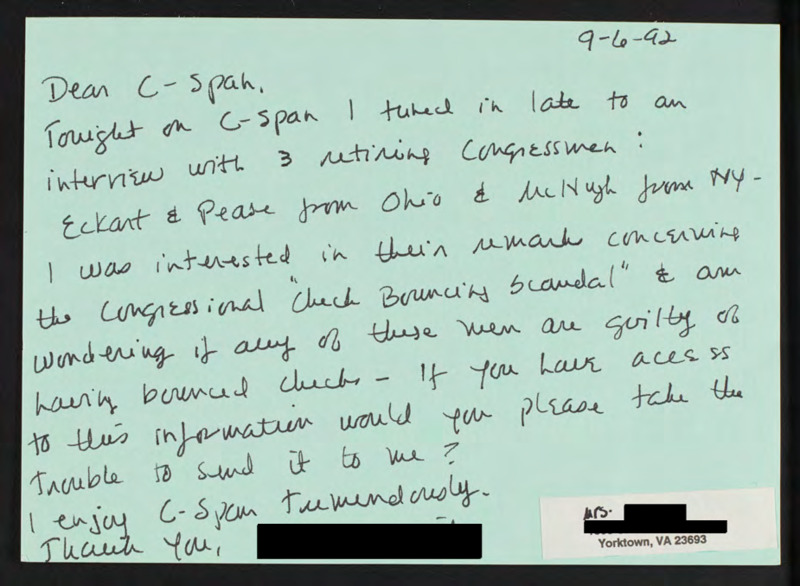 9-6-92
Dear C-Span,
Tonight on C-Span I tuned in late to an
interview with 3 retiring Congressmen :
Eckart & Pease from Ohio & McHugh from NY -
I was interested in their remarks concerning
the Congressional "Check Bouncing Scandal" & am
wondering if any of these men are guilty of
having bounced checks - If you have acess
to this information would you please take the
trouble to send it to me ?
I enjoy C-Span tremendously.
Thank You,
Mrs.
Yorktown, VA 23693